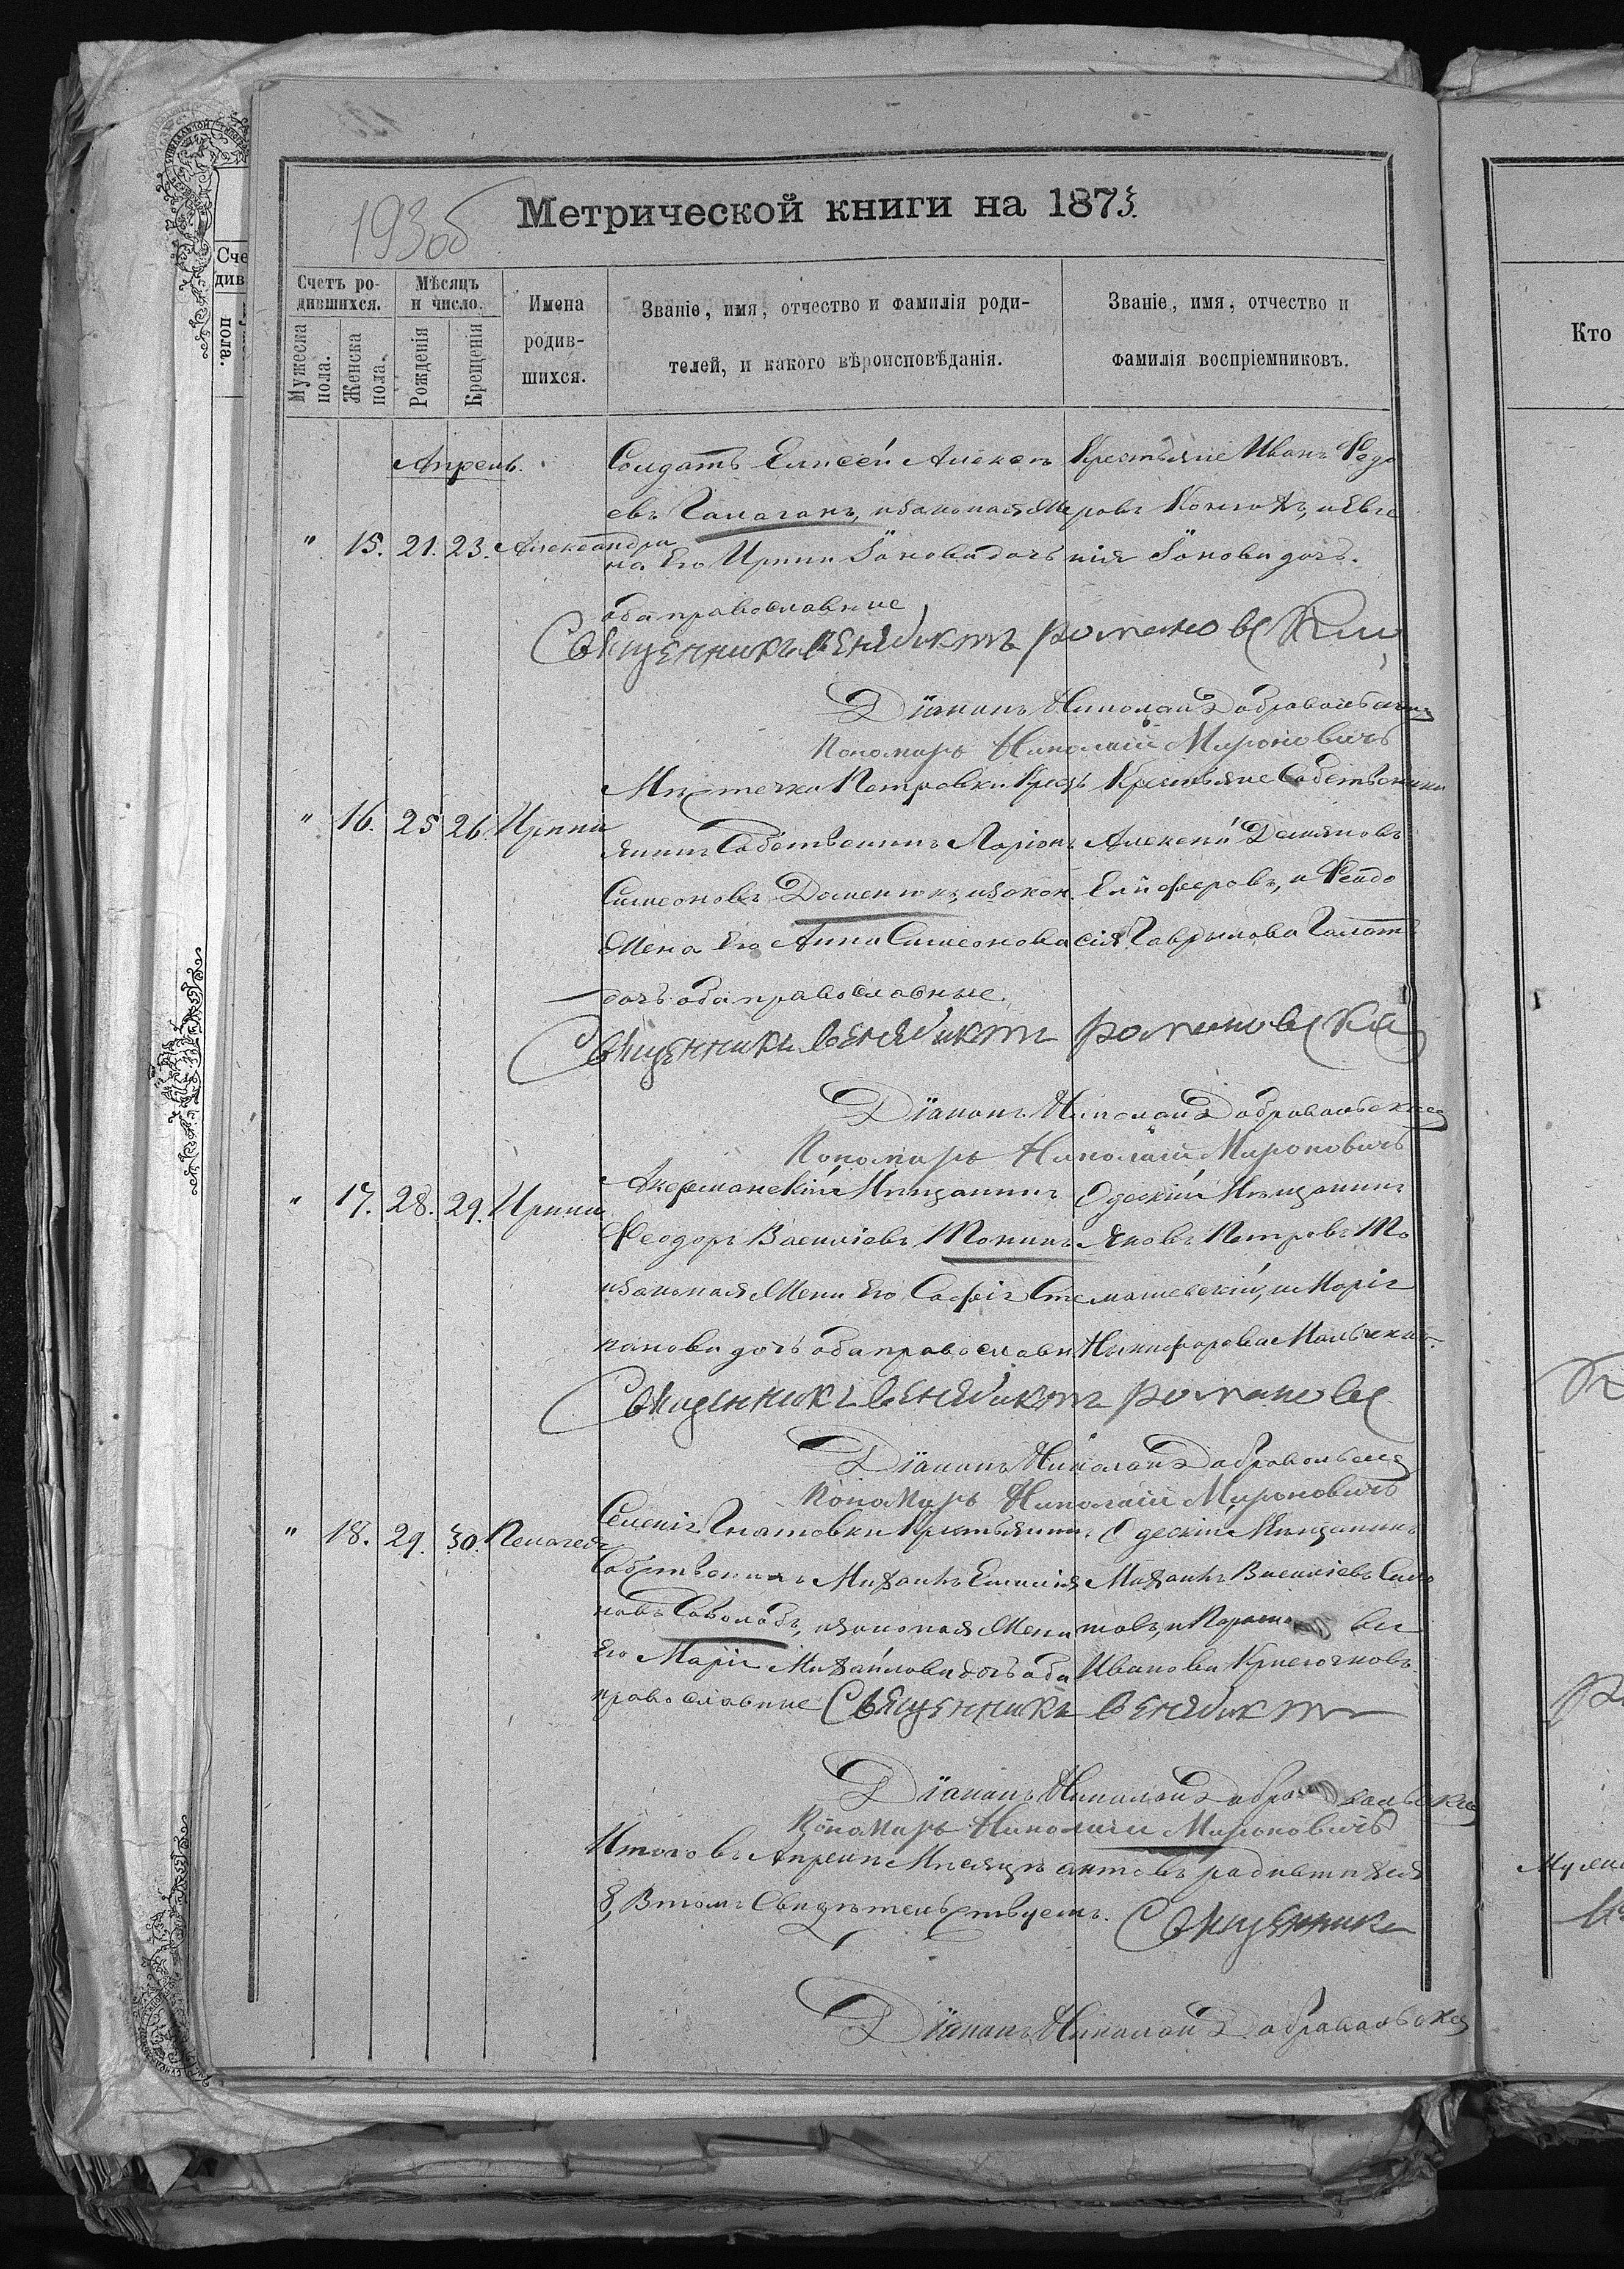 193об
Метрической книги на 1873.
Счетъ родившихся.
Мужеска пола.
Женска пола.
Мѣсяцъ и число.
Рожденія
Крещенія
Имена родив-
шихся.
Званіе, имя, отчество и фамилія роди-
телей, и какого вѣроисповѣданія.
Званіе, имя, отчество и
фамилія воспріемниковъ.
Апрель.
" 15. 21. 23. Александра
Солдатъ Елисей Алексѣ
евъ Галаганъ, и законая же
на Его Ирина Іакова дочь
оба православные
Крестьяне Иванъ Федо
ровъ и Евге
нія Іакова дочь.
Священникъ Венедиктъ Романовскій
Діаконъ Николай Добровольскій
Пономарь Николай Мироновичъ
" 16. 25 26. Ирина
Мѣстечка Петровки Крест
янинъ Собственникъ Ларіонъ
Симеоновъ Доментюкъ, и закон.
жена Его Анна Симеонова
дочь оба православные.
Крестьяне Собственники
Алексей Демяновъ
Елифееровъ, и Феодо
сія Гаврилова
Священникъ Венедиктъ Романовскій
Діаконъ Николай Добровольскій
Пономарь Николай Мироновичъ
" 17. 28. 29. Ирина
Акерманскій Мѣщанинъ
Феодоръ Василіевъ Тонинъ
и законая жена Его Софія Сте
панова дочь оба православн.
Одескій Мѣщанинъ
Яковъ Петровъ То
машевскій, и Марія
Никифорова
Священникъ Венедиктъ Романовс
Діаконъ Николай Добровольскій
Пономарь Николай Мироновичъ
" 18. 29. 30. Пелагея
Селенія Игнатовки Крестьянинъ
Собственникъ Михаилъ
новъ и законая жена
Его Марія Михайлова дочь оба
православные
Одескій Мѣщанинъ
Михаилъ Василіевъ
Иванова
Священникъ Венедиктъ
Діаконъ Николай Добровольскій
Пономарь Николай Мироновичъ
Итого въ Апрелѣ Месяцѣ актовъ родившихся
8, Втомъ Свидѣтельствуемъ.
Священникъ
Діаконъ Николай Добровольскій
Кто